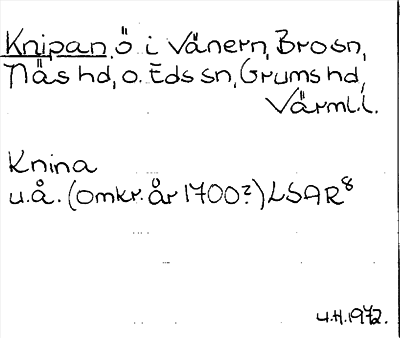 Knipan, ö i Vänern, Bro sn,
Näs hd, o. Eds sn, Grums hd,
Värml.l.
Knina
u.å. (omkr. år 1700?) LSAR 8
U.H. 1972.